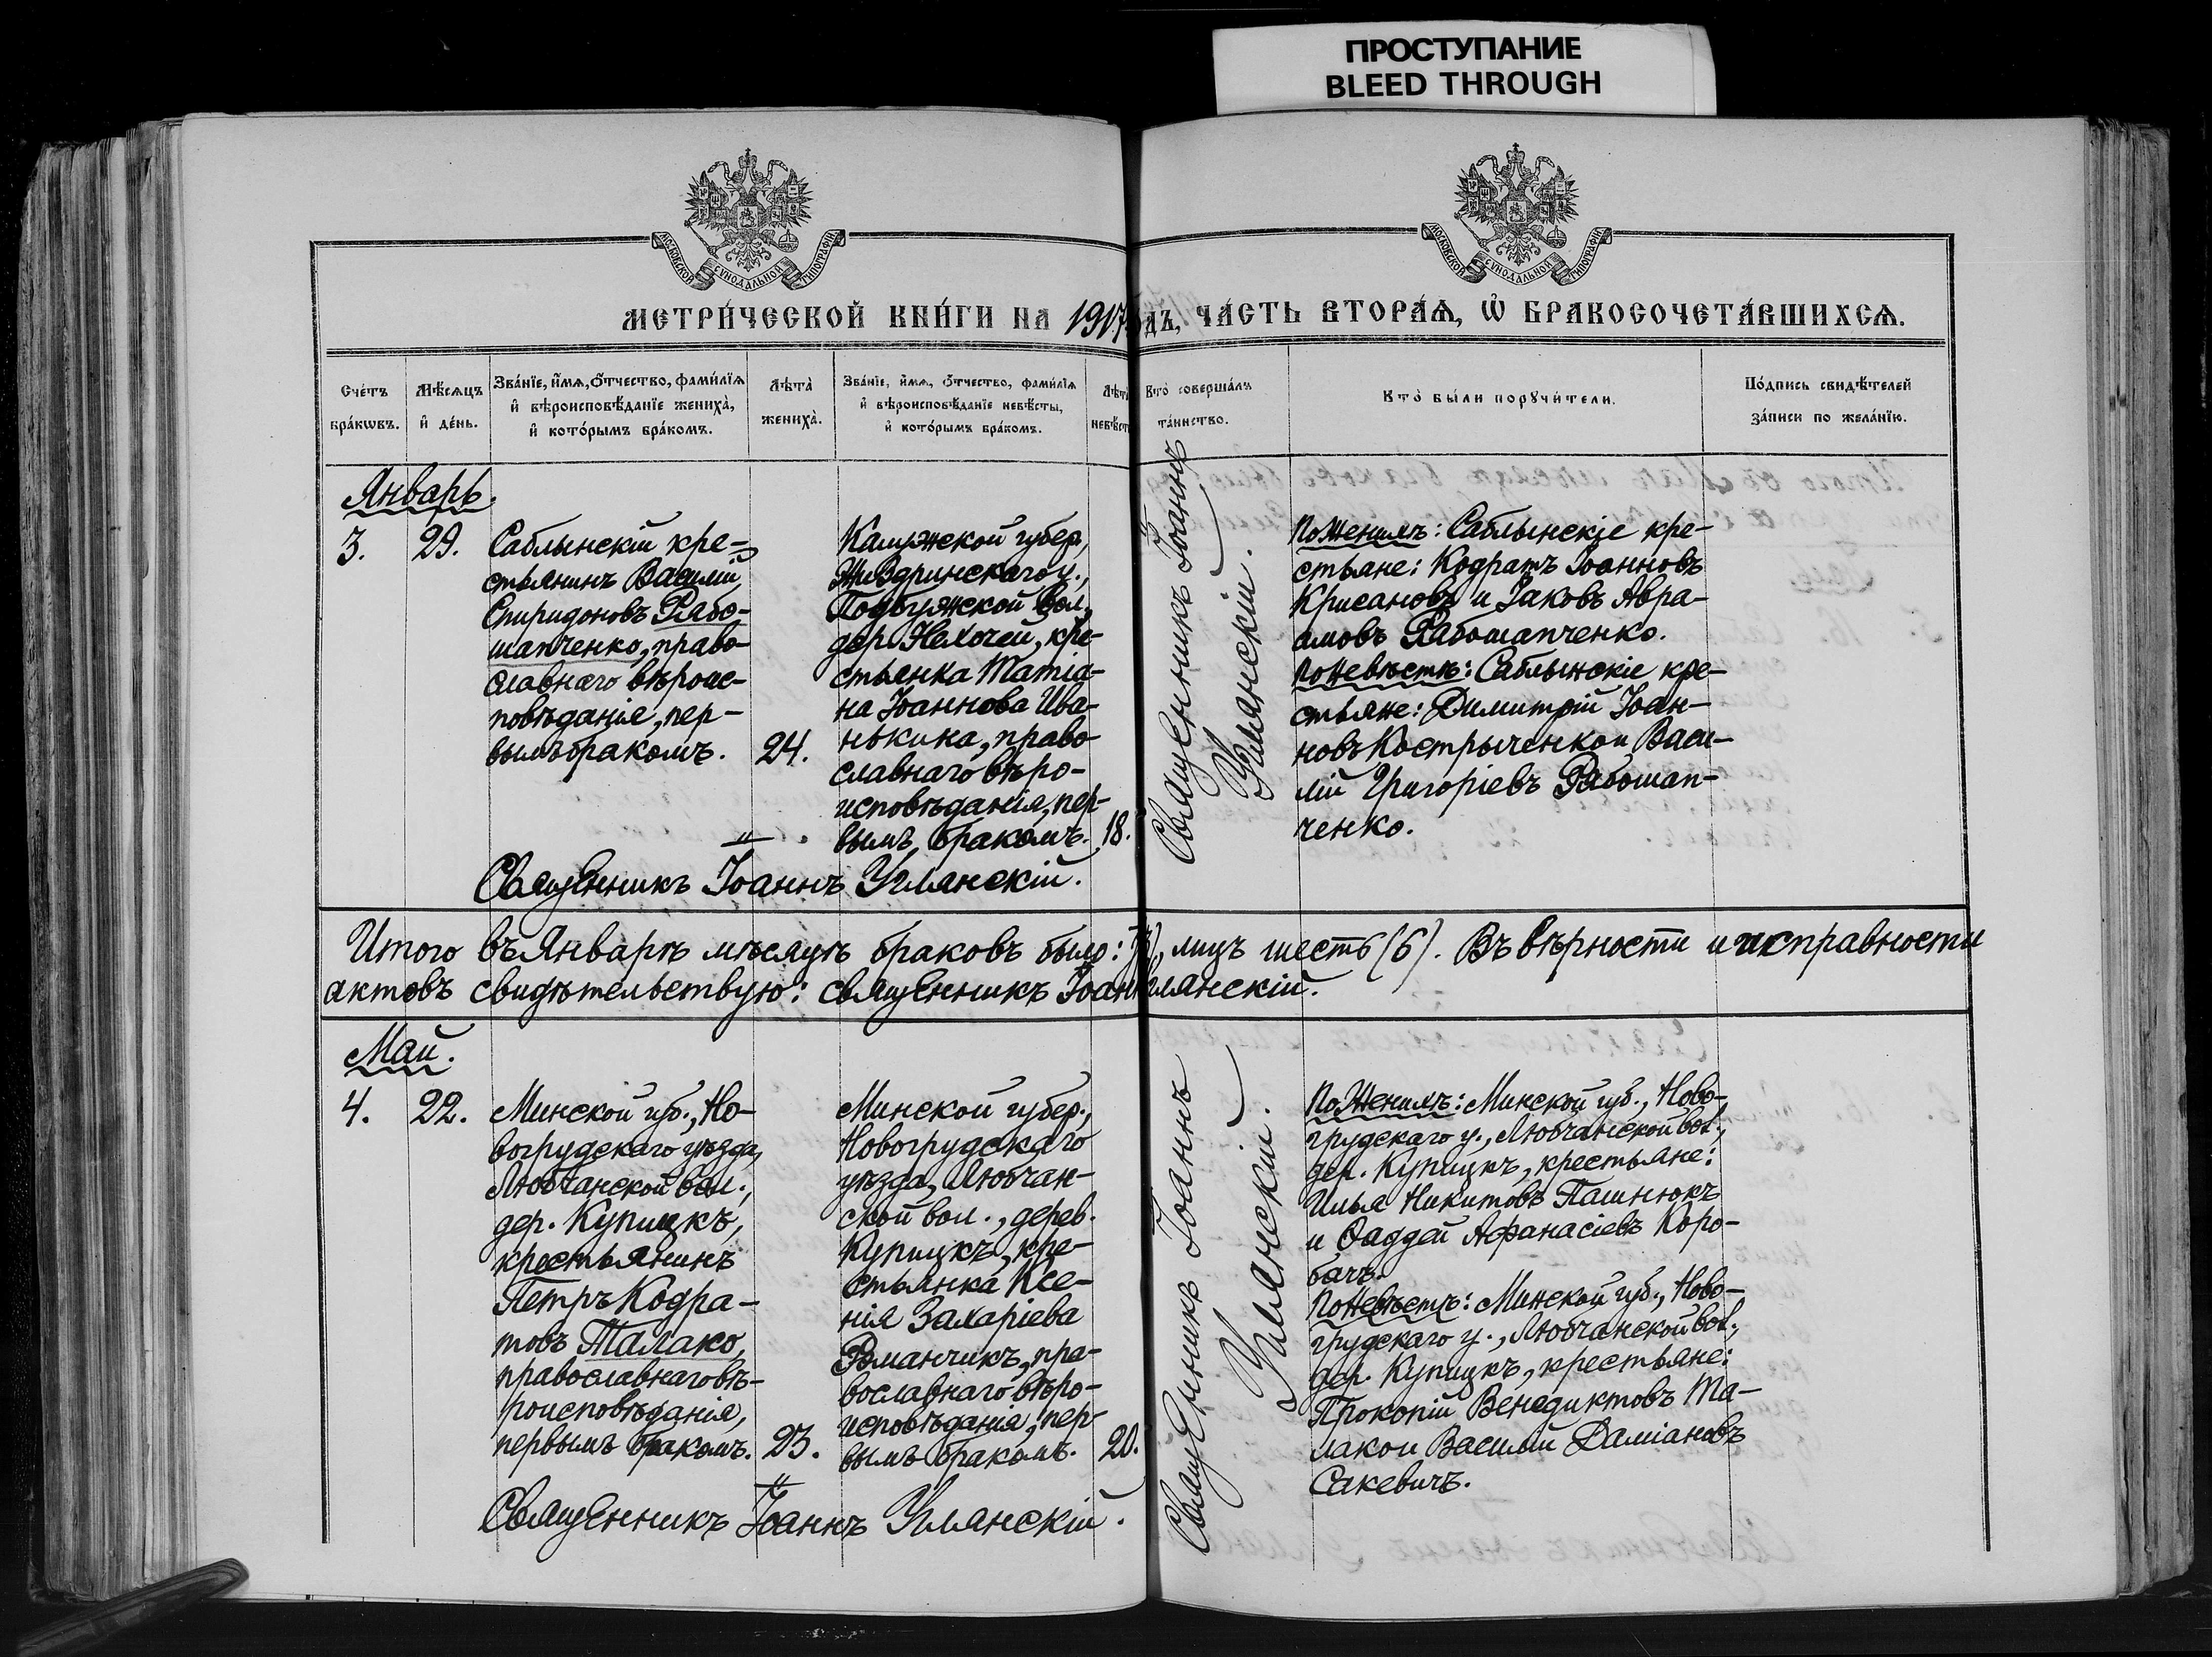 ПРОСТУПАНИЕ
BLEED THROUGH
МОСКОВСКОЙ СѴНОДАЛЬНОЙ ТИПОГРАФІИ
МОСКОВСКОЙ СѴНОДАЛЬНОЙ ТИПОГРАФІИ
МЕТРИ́ЧЕСКОЙ КНИ́ГИ НА 1917 ДЪ, ЧА́СТЬ ВТОРА́Ѧ, Ѡ҆ БРАКОСОЧЕТА́ВШИХСѦ.
Сче́тъ
бра́кѡвъ.
Мѣ́сѧцъ
и҆ де́нь.
Зва́нїе, и҆́мѧ, ѻ҆́тчество, фами́лїѧ
и҆ вѣроисповѣ́данїе жениха̀,
и҆ кото́рымъ бра́комъ.
Лѣта̀
жениха̀.
Зва́нїе, и҆́мѧ, ѻ҆́тчество, фами́лїѧ
и҆ вѣроисповѣ́данїе невѣ́сты,
и҆ кото́рымъ бра́комъ.
Лѣта̀
невѣ́ст
Кто̀ соверша́лъ
та́инство.
Кто̀ бы́ли порꙋчи́тели.
По́дпись свидѣ́телей
за́писи по жела́нїю.
Январь.
3.
29.
Саблынскій кре-
стьянинъ Василій
Спиридоновъ Рябо-
шапченко, право-
славнаго вѣроис-
повѣданія, пер-
вымъ бракомъ.
24.
Калужской губер,
Жиздринскаго у.,
Подбужской вол.,
дер. Нехочей, кре-
стьянка Татіа-
на Іоаннова Ива-
нькина, право-
славнаго вѣро-
исповѣданія, пер-
вымъ бракомъ.
18.
Священникъ Іоаннъ
Углянскій.
По Женихѣ: Саблынскіе кре-
стьяне: Кодратъ Іоанновъ
Крисановъ и Іаковъ Авра-
амовъ Рябошапченко.
По Невѣстѣ: Саблынскіе кре-
стьяне: Димитрій Іоан-
новъ Кострыченко и Васи-
лій Григоріевъ Рябошап-
ченко.
Священникъ Іоаннъ Углянскій.
Итого въ Январѣ мѣсяцѣ браковъ было: лицъ шесть (6). Въ вѣрности и исправности
актовъ свидѣтельствую: священникъ Іоанн глянскій.
Май.
4.
22.
Минской губ., Но-
вогрудскаго уѣзда,
Любчанской вол.,
дер. Купицкъ,
крестьянинъ
Петръ Кодра-
товъ Малако,
православнаго вѣ-
роисповѣданія,
первымъ бракомъ.
23.
Минской губер.,
Новогрудскаго
уѣзда, Любчан-
ской вол., дерев.
Купицкъ, кре-
стьянка Ксе-
нія Захаріева
Романчикъ, пра-
вославнаго вѣро-
исповѣданія, пер-
вымъ бракомъ.
20.
Священникъ Іоаннъ
Углянскій.
По Женихѣ: Минской губ., Ново-
грудскаго у., Любчанской вол.,
дер. Купицкъ, крестьяне:
Илья Никитовъ Пашнюкъ
и Ѳаддей Афанасіевъ Коро-
бачъ.
По Невѣстѣ: Минской губ., Ново-
грудскаго у., Любчанской вол.,
дер. Купицкъ, крестьяне:
Прокопій Венедиктовъ Ма-
лако и Василій Даміановъ
Сакевичъ.
Священникъ Іоаннъ Углянскій.